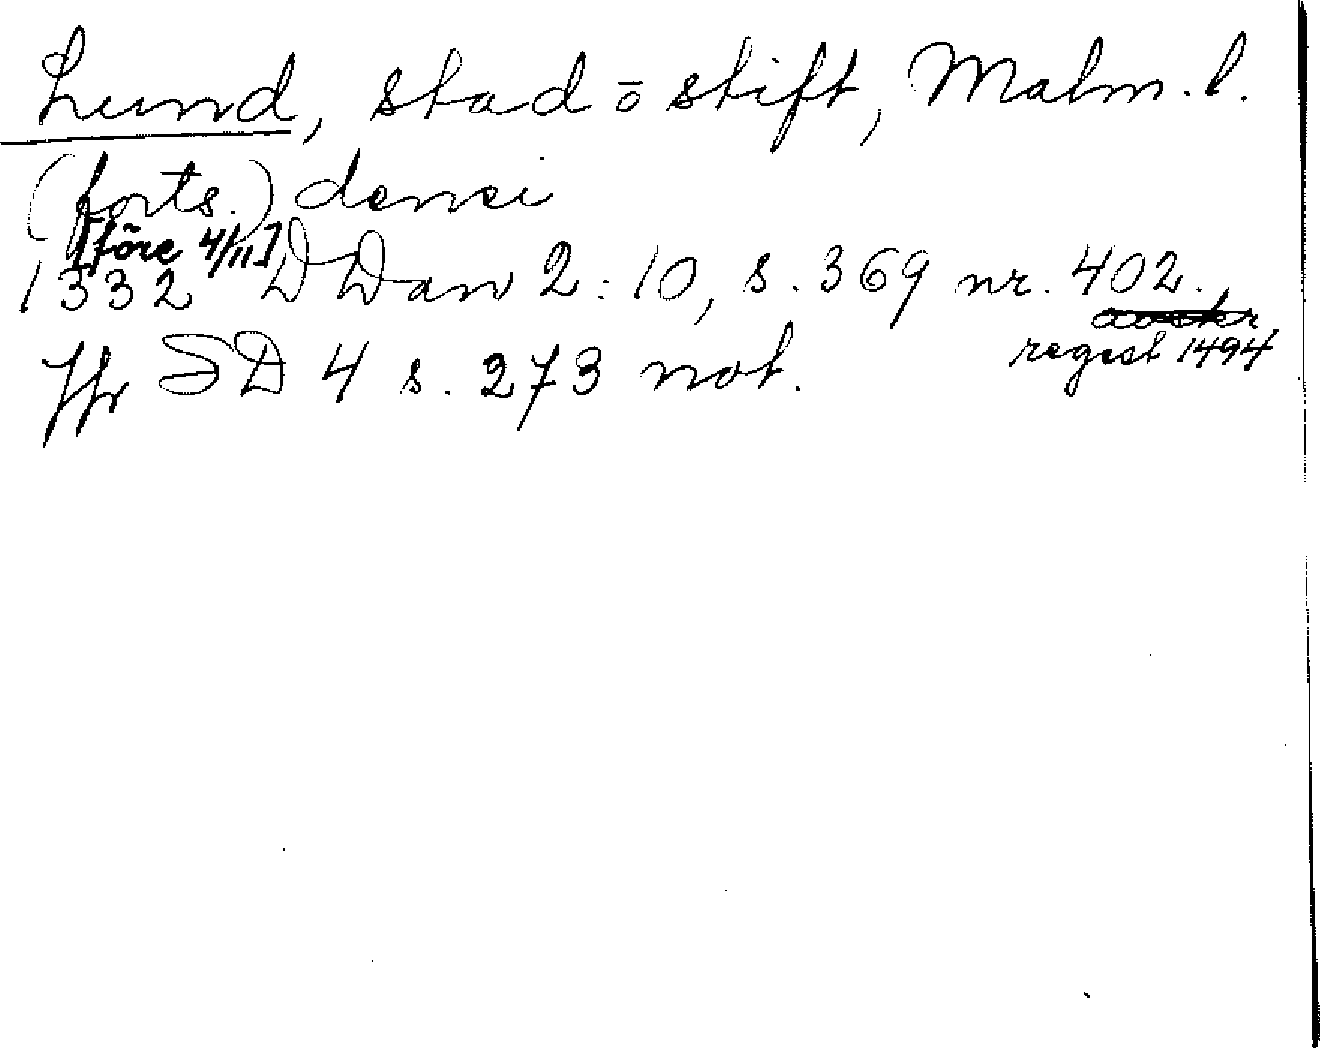 Lund, stad o stift, Malm. l.
(forts.)
[före 4/11]
1332 DDan 2:10, s. 369 nr. 402.
avskr
regest 1494
Jfr SD 4 s. 273 not.